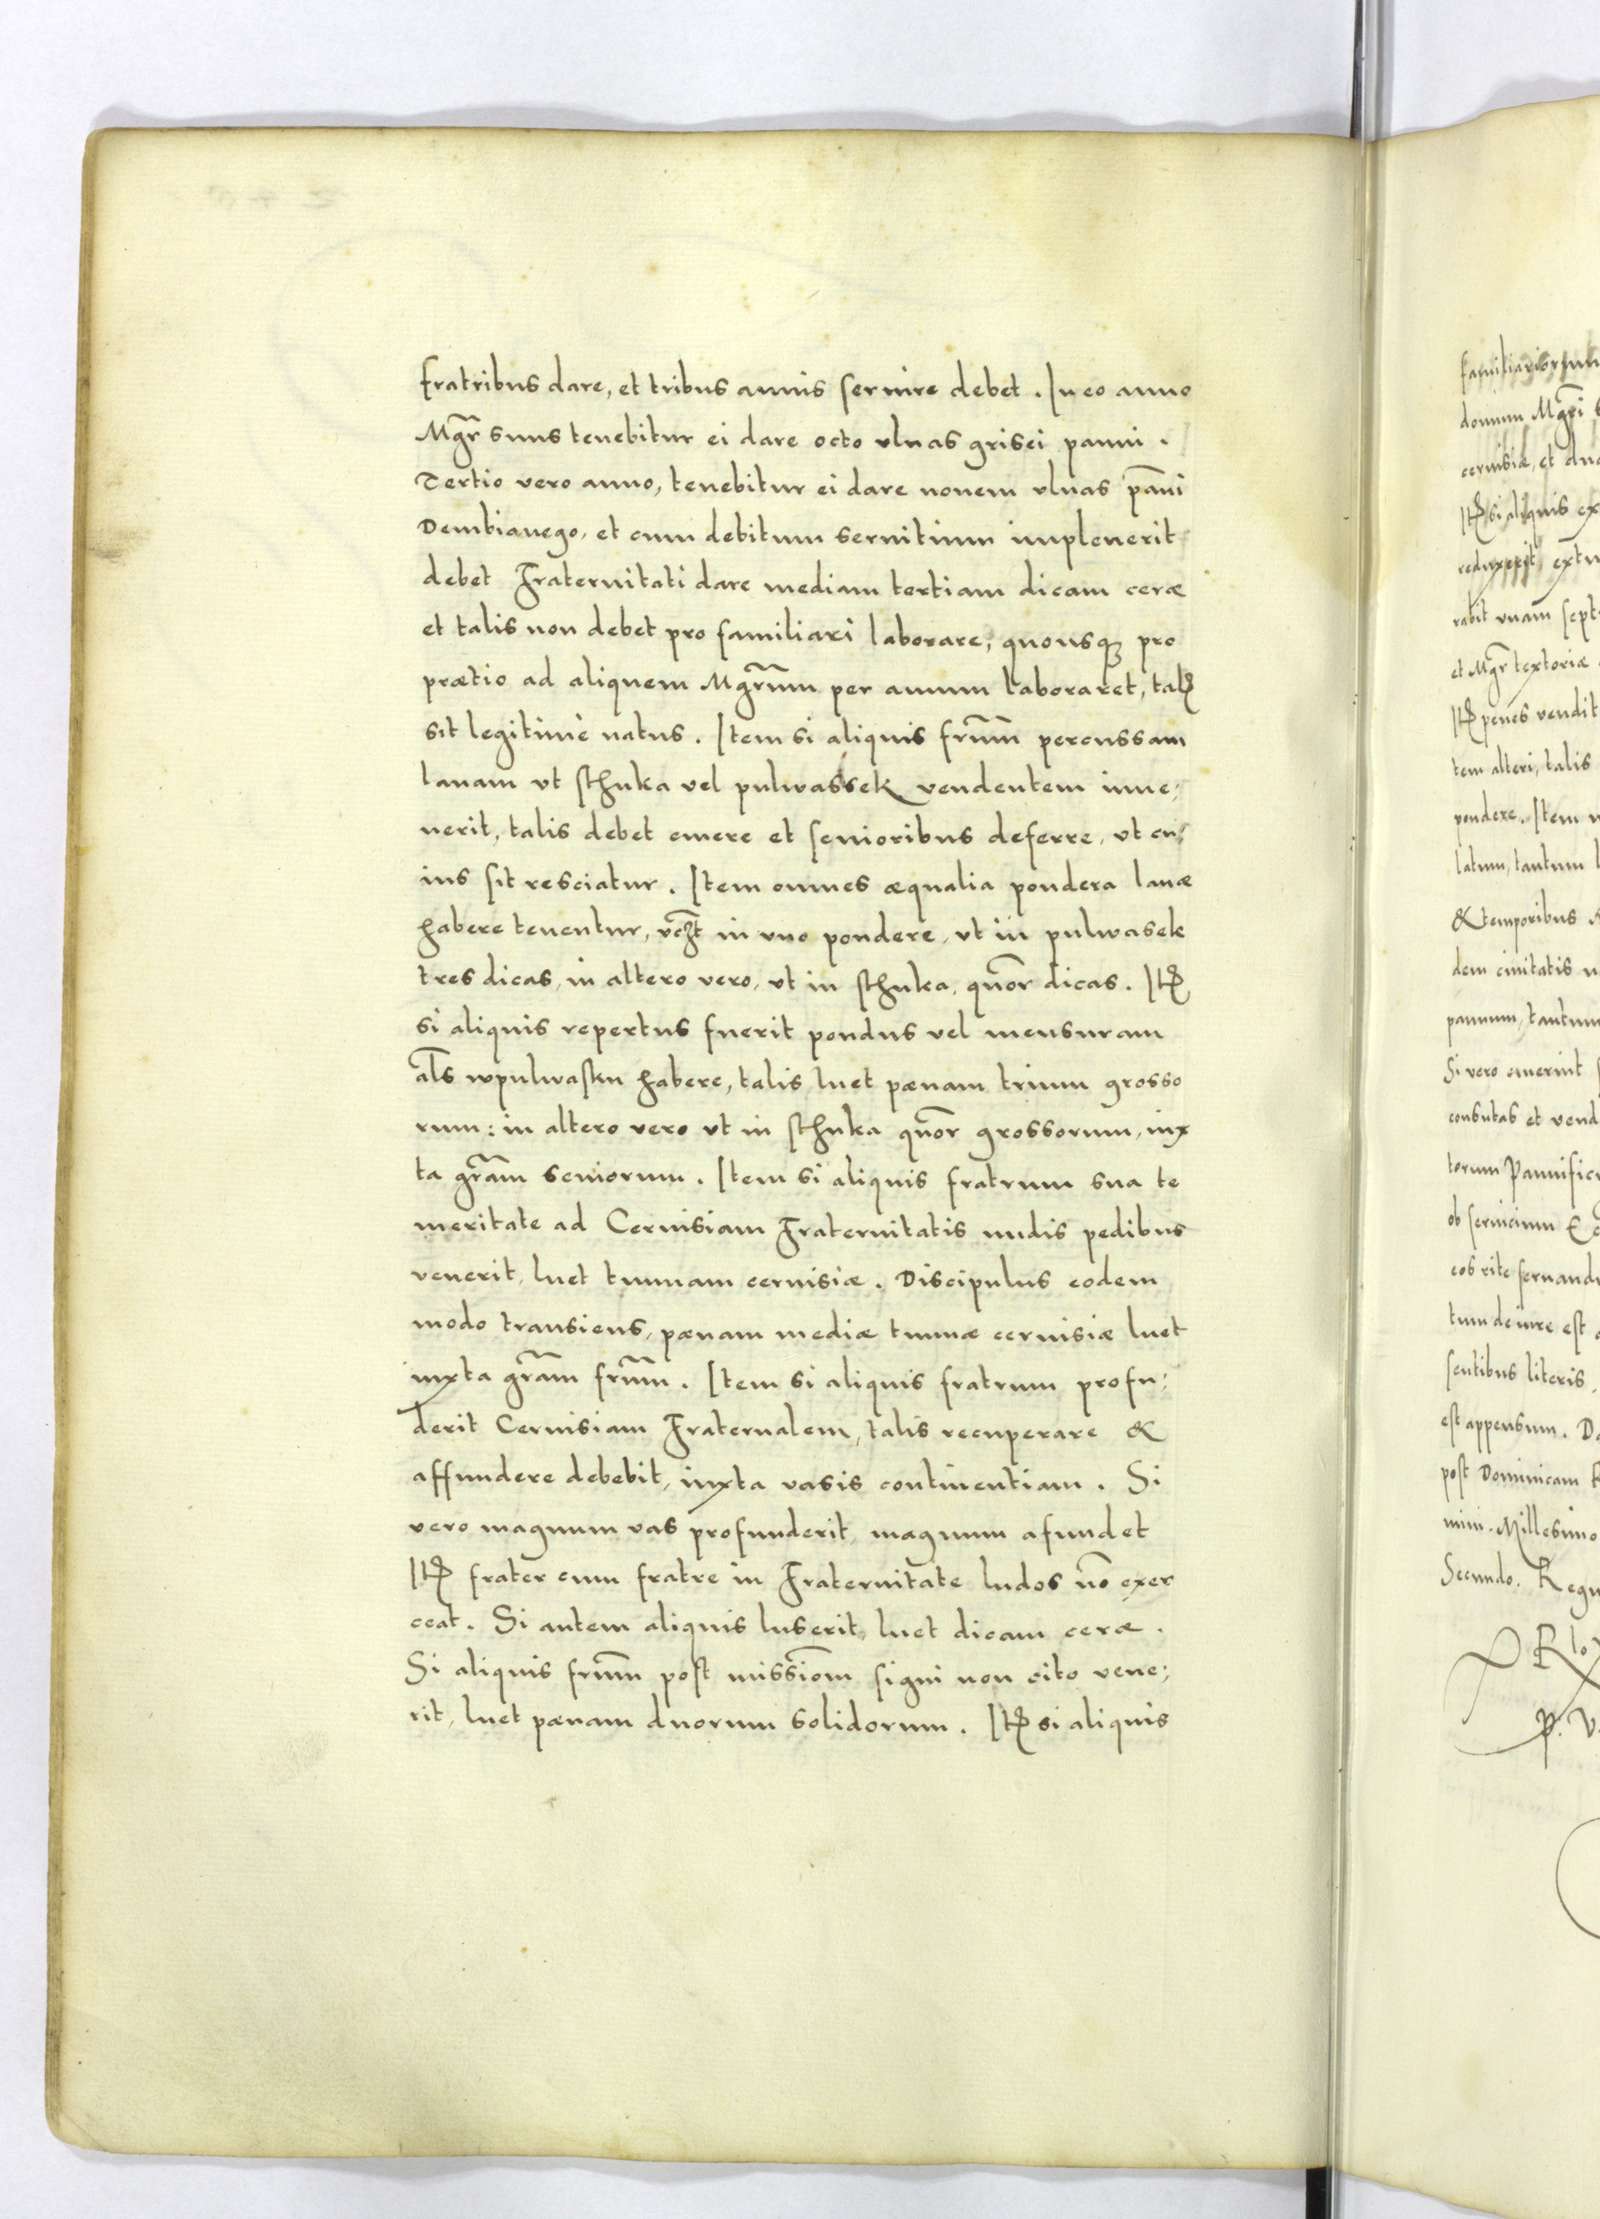 fratribus dare, et tribus annis seruire debet. In eo anno
Mgr̄ suus tenebitur ei dare octo vlnas grisei panni.
Tertio vero anno, tenebitur ei dare nouem vlnas pāni
Dembianego, et cum debitum seruitium impleuerit
debet Fraternitati dare mediam tertiam dicam ceræ
et talis non debet pro familiari laborare, quousqȝ pro
prætio ad aliquem Mgr̄um per annum laboraret, talꝭ
sit legitimè natus. Item si aliquis frūm percussam
lanam vt sthuka vel pulwassek vendentem inue;
nerit, talis debet emere et senioribus deferre, vt cu;
ius sit resciatur. Item omnes æqualia pondera lanæ
habere tenentur, vcȝt in vno pondere, vt in pulwasek
tres dicas, in altero vero, vt in sthuka, quōr dicas. Itꝭ
si aliquis repertus fuerit pondus vel mensuram
al̄s wpulwasku habere, talis luet pænam trium grosso
rum: in altero vero vt in sthuka quōr grossorum, iux
ta gr̄am seniorum. Item si aliquis fratrum sua te
meritate ad Ceruisiam Fraternitatis nudis pedibus
venerit, luet tunnam ceruisiæ. Discipulus eodem
modo transiens, pænam mediæ tunnæ ceruisiæ luet
iuxta gr̄am frūm. Item si aliquis fratrum profu;
derit Ceruisiam Fraternalem, talis recuperare &
affundere debebit, iuxta vasis continentiam. Si
vero magnum vas profunderit, magnum afundet
Itꝭ frater cum fratre in Fraternitate ludos nō exer
ceat. Si autem aliquis luserit, luet dicam ceræ.
Si aliquis frūm post missiōm signi non cito vene;
rit, luet pænam duorum solidorum. Itꝭ si aliquis
domum Mgr̄i
ceruisiæ, et
Itꝭ si aliquis
rabit vnam
et Mgr̄ textoriæ
Itꝭ penes vendit
tem alteri, talis
pondere. Item
latum, tantum
& temporibus
dem ciuitatis
pannum, tantum
Si vero emerint
consutas et vend
torum Pannific
ob seruicium
eos rite seruand
tum de iure est
sentibus literis,
est appensum.
post Dominicam
mini. Millesimo
Secundo. Regn